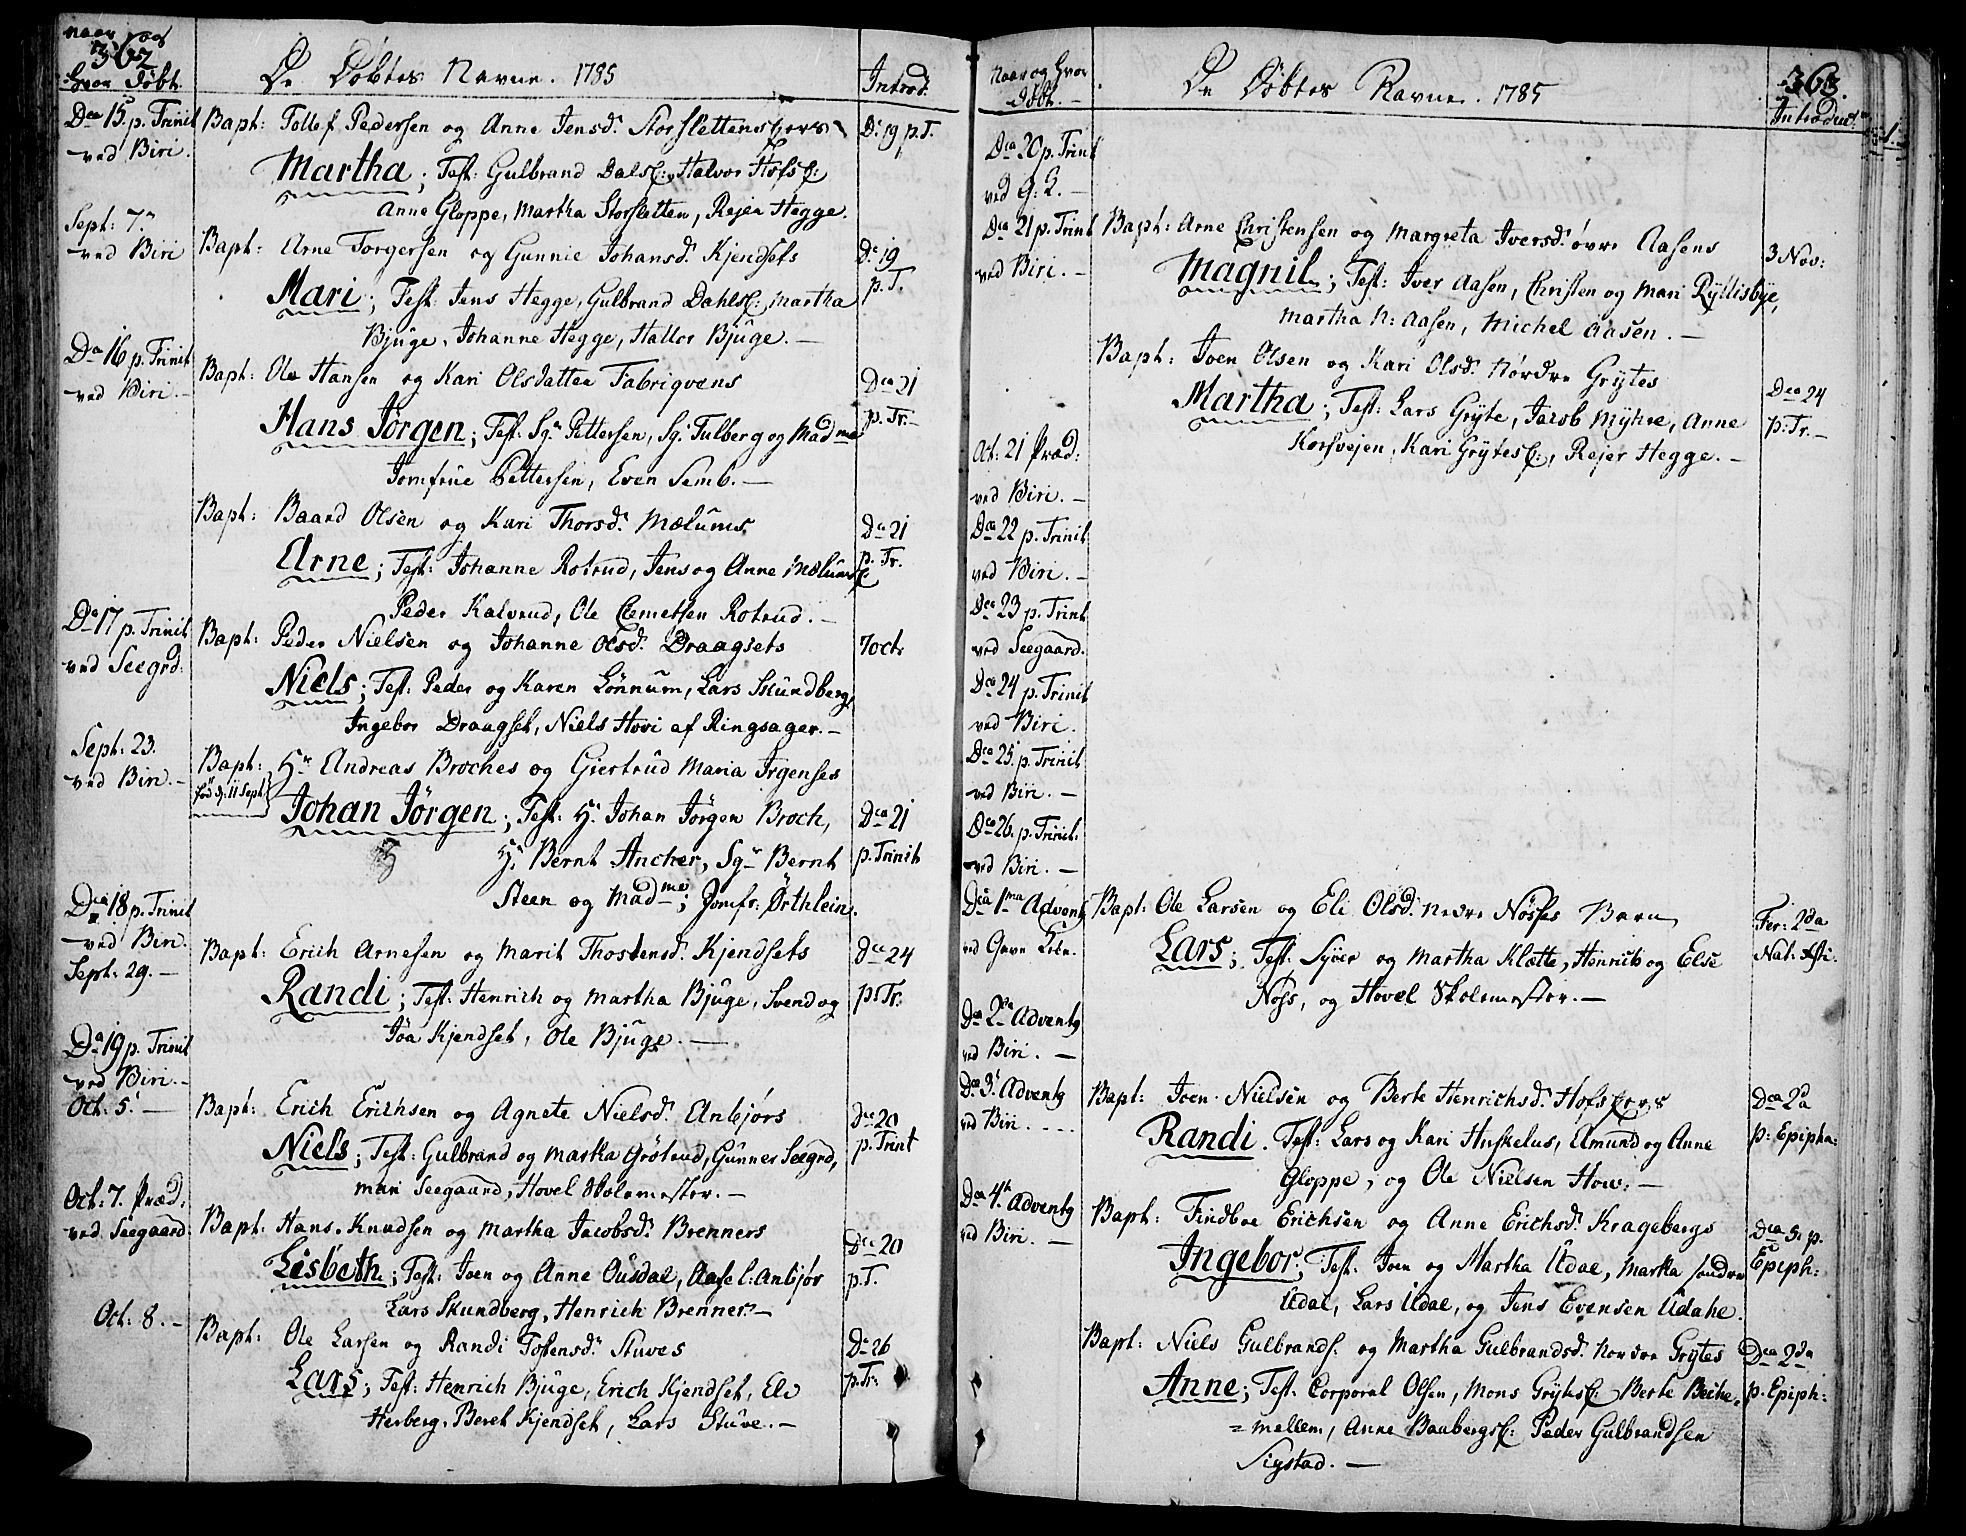 Naar og
362
Hvor Døbt.
De Døbtes Navne. 1785
Introd.
Dca 15 p. Trinit
ved Biri.
Baph: Tollef Pedersen og Anne Jensd: Storslettens
D: 19 p. T.
Martha; Test: Gulbrand Dals: Halvor Hofs:
Anne Gloppe, Martha Storsletten, Rejer Hegge.
Sept: 7.
ved Biri
Baph: Arne Torgersen og Gunnie Johansd: Kjendsets
D: 19
p. T.
Mari; Test: Jens Hegge, Gulbrand Dahls: Martha
Bjuge, Johanne Hegge, Hallor Bjuge. —
Da 16 p. Trinit
ved Biri. —
Baph: Ole Hansen og Kari Olsdatter Fabriqvens
Dca 21
p. Tr. —
Hans Jørgen; Test: Sgr Pettersen, Sg: Fulberg og Madme
Jomfrue Pettersen, Even Semb. —
Baph: Baard Olsen og Kari Thorsd: Mælums
Dca 21
p. Tr.
Arne; Test: Johanne Rotrud, Jens og Anne Mælums
Peder Kalvrud, Ole Clemetsen Rotrud. —
Da 17 p. Trinit
ved Seegrd:
Baph: Peder Nielsen og Johanne Olsd: Draagsets
7 oct.
Niels; Test: Peder og Karen Lönnum, Lars Skundberg,
Ingebor Draagset, Niels Hovi af Ringsager. —
Sept: 23.
ved Biri. —
Baph: Hr Andreas Broches og Giertrud Maria Irgenses
fød d: 11 Sept:
Johan Jörgen; Test: H: Johan Jörgen Broch,
Dca 21
p. Trinit
H: Bernt Ancher, Sgr Bernt
Steen og Madme; Jomfr: Örthlein.
Dca 18 p. Trinit
ved Biri.
Sept: 29. —
Baph: Erich Arnesen og Marit Thostensd: Kjendsets
Dca 24
p: Tr:
Randi; Test: Henrich og Martha Bjuge, Svend og
Jöa Kjendset, Ole Bjuge. —
Da 19 p. Trinit
ved Biri. —
Oct: 5. —
Baph: Erich Erichsen og Agnete Nielsd: Anbjørs
Dca 20
p. Trinit
Niels; Test: Gulbrand og Martha Grötrud, Gunner Seegrd,
Mari Seegaard, Hovel Skolemester. —
Oct: 7. Præd:
ved Seegaard:
Baph: Hans Knudsen og Martha Jacobsd: Brenners
Dca 20
p. T.
Lisbeth; Test: Joen og Anne Ousdal, Aase l: Anbjør
Lars Skundberg, Henrich Brenner. —
Oct: 8. —
Baph: Ole Larsen og Randi Tostensd: Stuves
D: 26
p. Tr:
Lars; Test: Henrich Bjuge, Erich Kjendset, Eli
Herberg, Beret Kjendset, Lars Stuve. —
Naar og Hvor
Døbt. —
De Døbtes Navne. 1785
363.
Introduc:
Dca 20 p. Trinit
ved G: L. —
Dca 21 p. Trinit
ved Biri. —
Baph: Arne Christensen og Margreta Iversd: övre Aasens
3 Nov:
Magnil; Test: Iver Aasen, Christen og Mari Ryllisbye,
Martha N: Aasen, Michel Aasen. —
Baph: Joen Olsen og Kari Olsd: Nørdre Grytes
Dca 24
p. Tr. —
Martha; Test: Lars Gryte, Jacob Myhre, Anne
Korsvejen, Kari Grytes:, Rejer Hegge. —
Oct: 21 Præd:
ved Biri. —
Dca 22 p. Trinit
ved Biri. —
Dca 23 p. Trinit
ved Seegaard.
Dca 24 p. Trinit
ved Biri.
Dca 25. p. Trinit
ved Biri. —
Dca 26. p. Trinit:
ved Biri. —
Dca 1ma Advent
Baph: Ole Larsen og Eli Olsd: Nedre Nøsses Barn
Fer: 2da
Nat: Xsti.
Lars; Test: Syver og Martha Klætte, Henrich og Else
Noss, og Hovel Skolemester. —
Dca 2da Advent
ved Biri. —
Dca 3: Advent
ved Biri.
Baph: Joen Nielsen og Berte Henrichsd: Hofs
Dca 2da
p: Epipha:
Randi. Test: Lars og Kari Huskelus, Amund og Anne
Gloppe, og Ole Nielsen How: —
Dca 4ta Advent
ved Biri. —
Baph: Findboe Erichsen og Anne Erichsd: Kragebergs
Dca 5: p.
Epiph:
Ingebor; Test: Joen og Martha Udal, Martha søndre
Udal, Lars Udal, og Jens Evensen Udahl.
Baph: Niels Gulbrands: og Martha Gulbrandsd: Nordre Grytes
Dca 2da
p. Epiph:
Anne; Test: Corporal Olsen, Mons Grytes: Berte Beche=
=mellem, Anne Baabergs: Peder Gulbrandsen
Sigstad. —